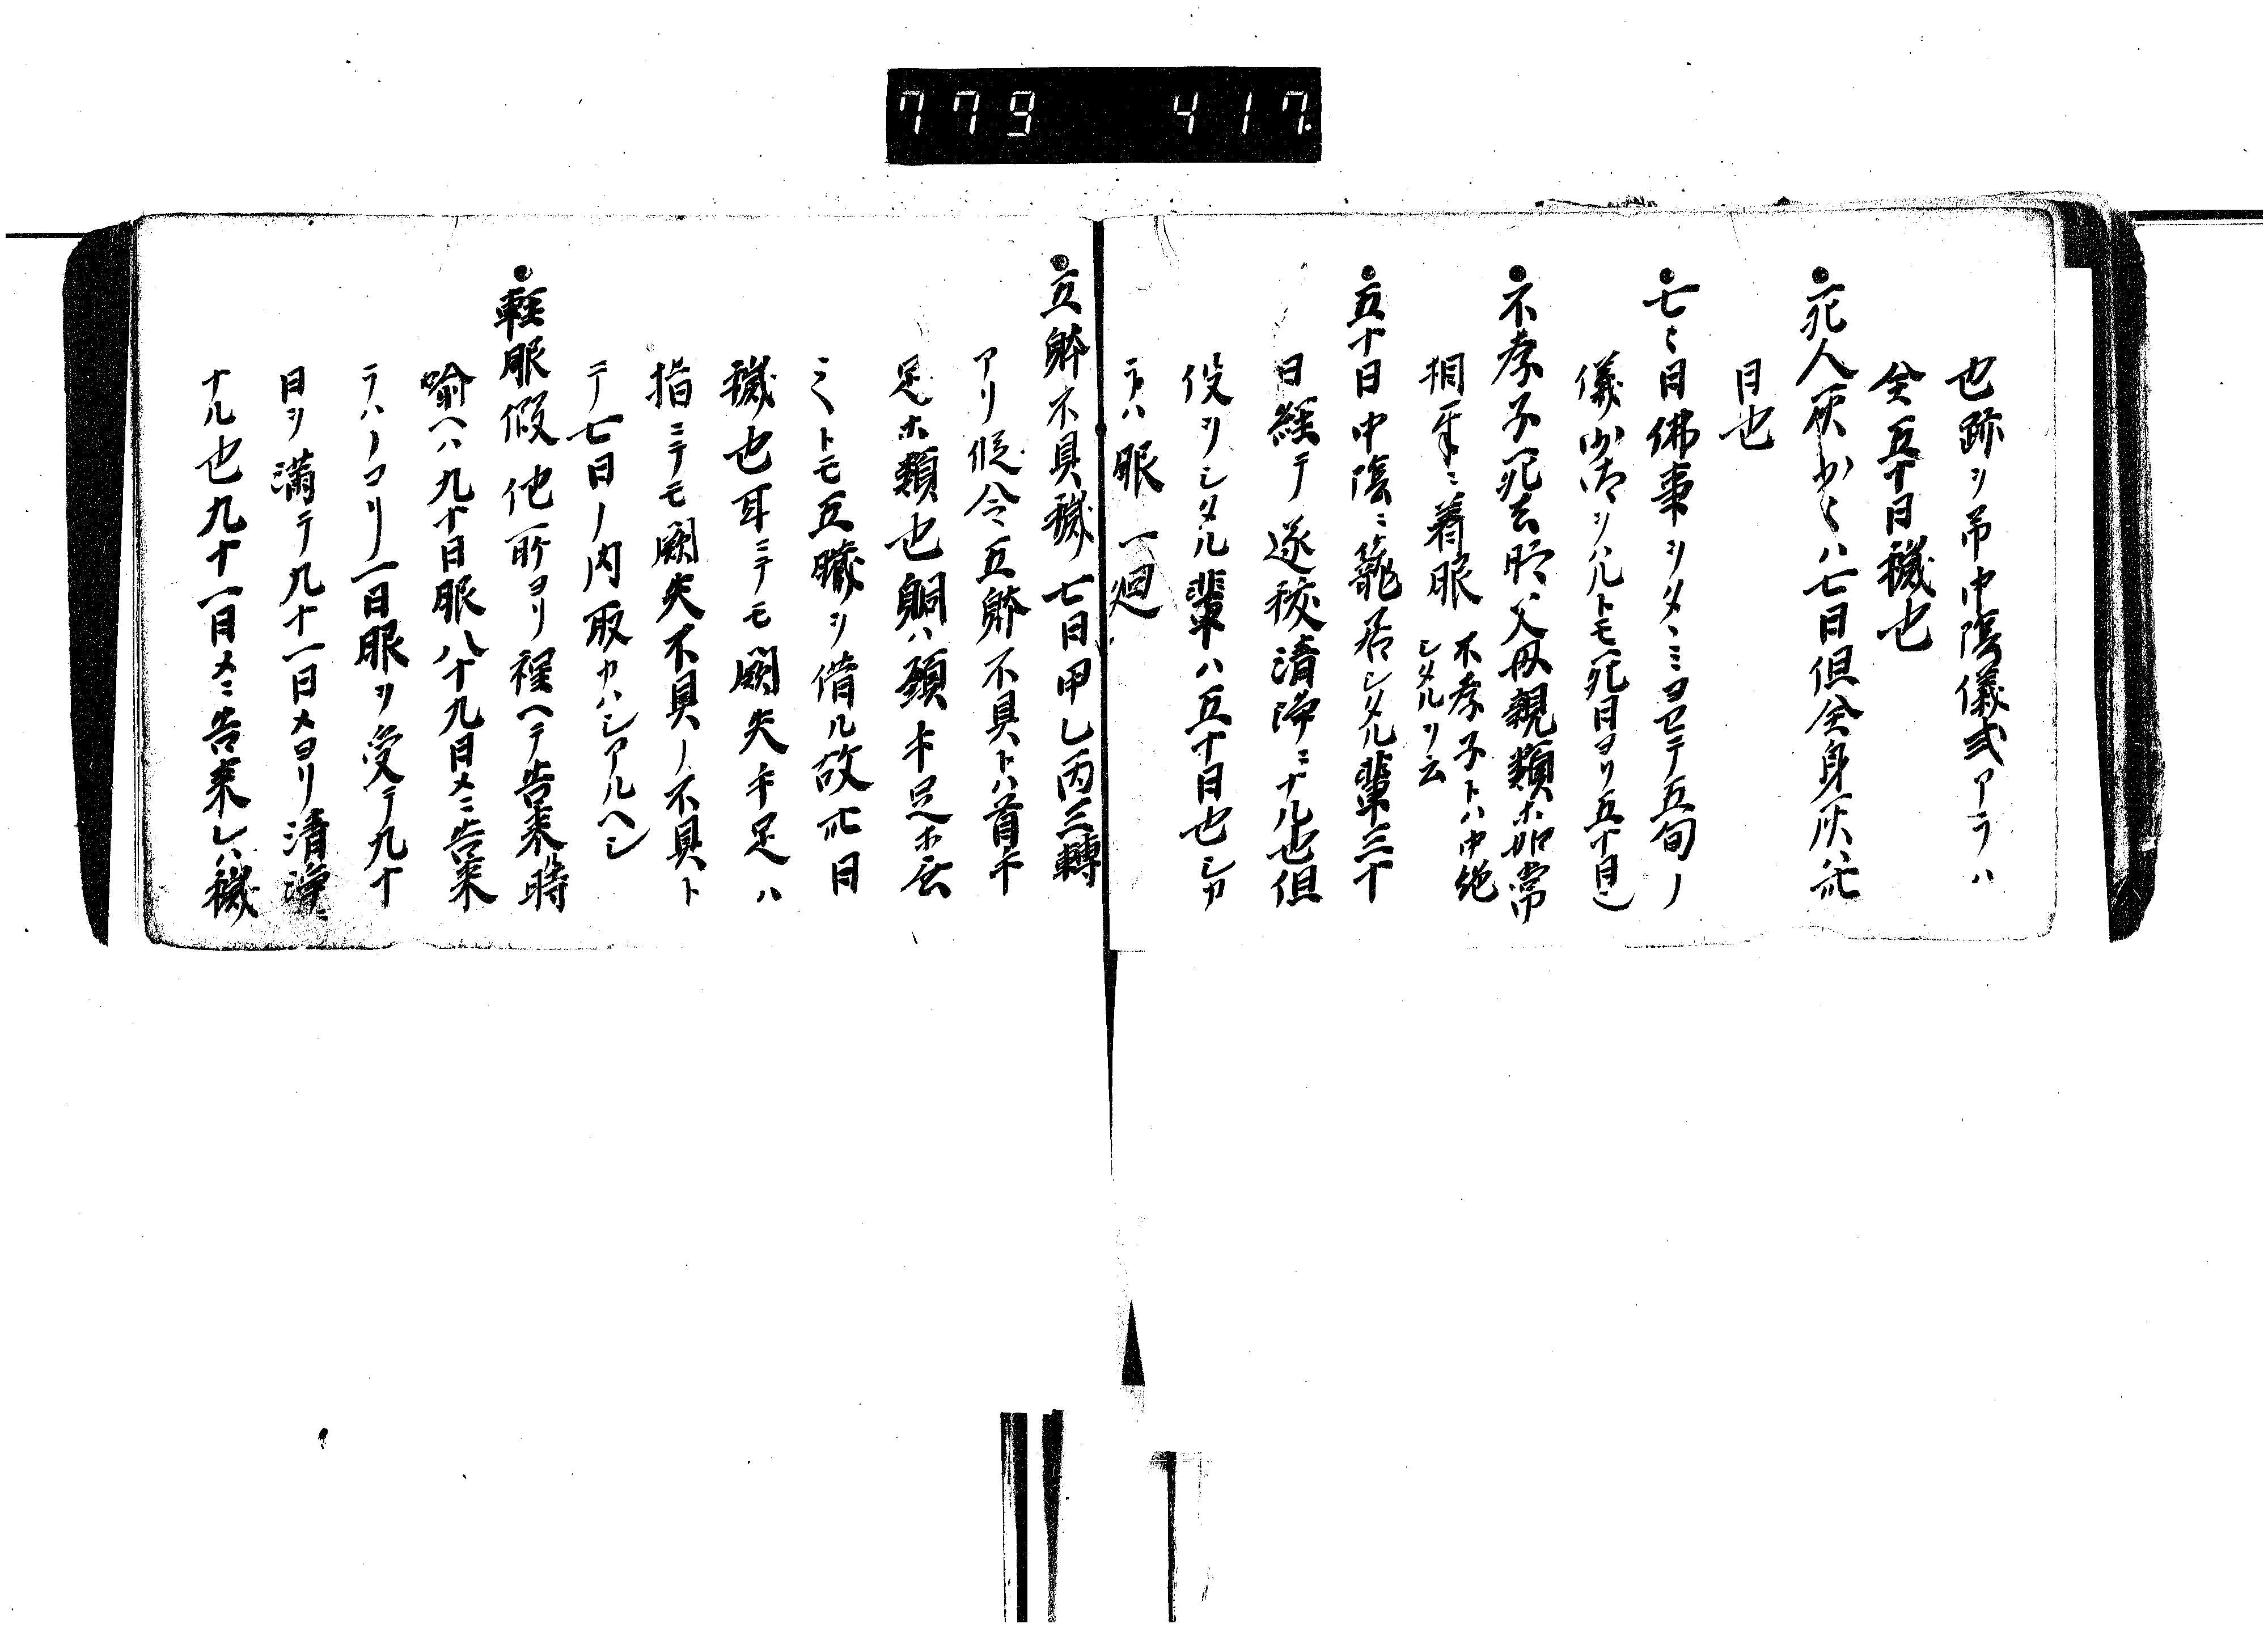 779 417.
也跡ヲ吊中陰儀式アラハ
全五十日穢也
●死人灰少〻ハ七日但全身灰ハ卅
日也
●七〻日佛事ヲシタヽミヨセテ五旬ノ
儀少ナリハルトモ死日ヨリ五十日也
●不孝子死去時父母親類ホ如常
相互ニ着服 不孝子トハ中絶
シタルヲ云
●五十日中陰ニ籠居シタル輩三十
日経テ遂祓清浄ニナル也但
役ヲシタル輩ハ五十日也シカ
ラハ服一廻
●五躰不具穢七日甲乙丙三轉
アリ假令五躰不具トハ首手
足ホ類也胴ハ頭手足ホ无
ニ〱トモ五臓ヲ備ル故卅日
穢也耳ニテモ闕失手足ハ
指ニテモ闕失不具ノ不具ト
テ七日ノ内取カハシアルヘシ
●軽服假他所ヨリ程ヘテ告来時
喩ヘハ九十日服八十九日メニ告来
ラハノコリ一日服ヲ受テ九十
日ヲ満テ九十一日メヨリ清浄ニ
ナル也九十一日メニ告来レハ穢